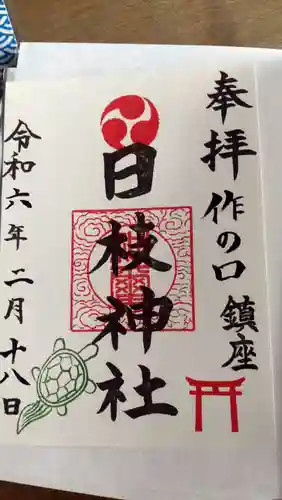 奉拝
作の口鎮座
日枝神社
令和六年二月十八日